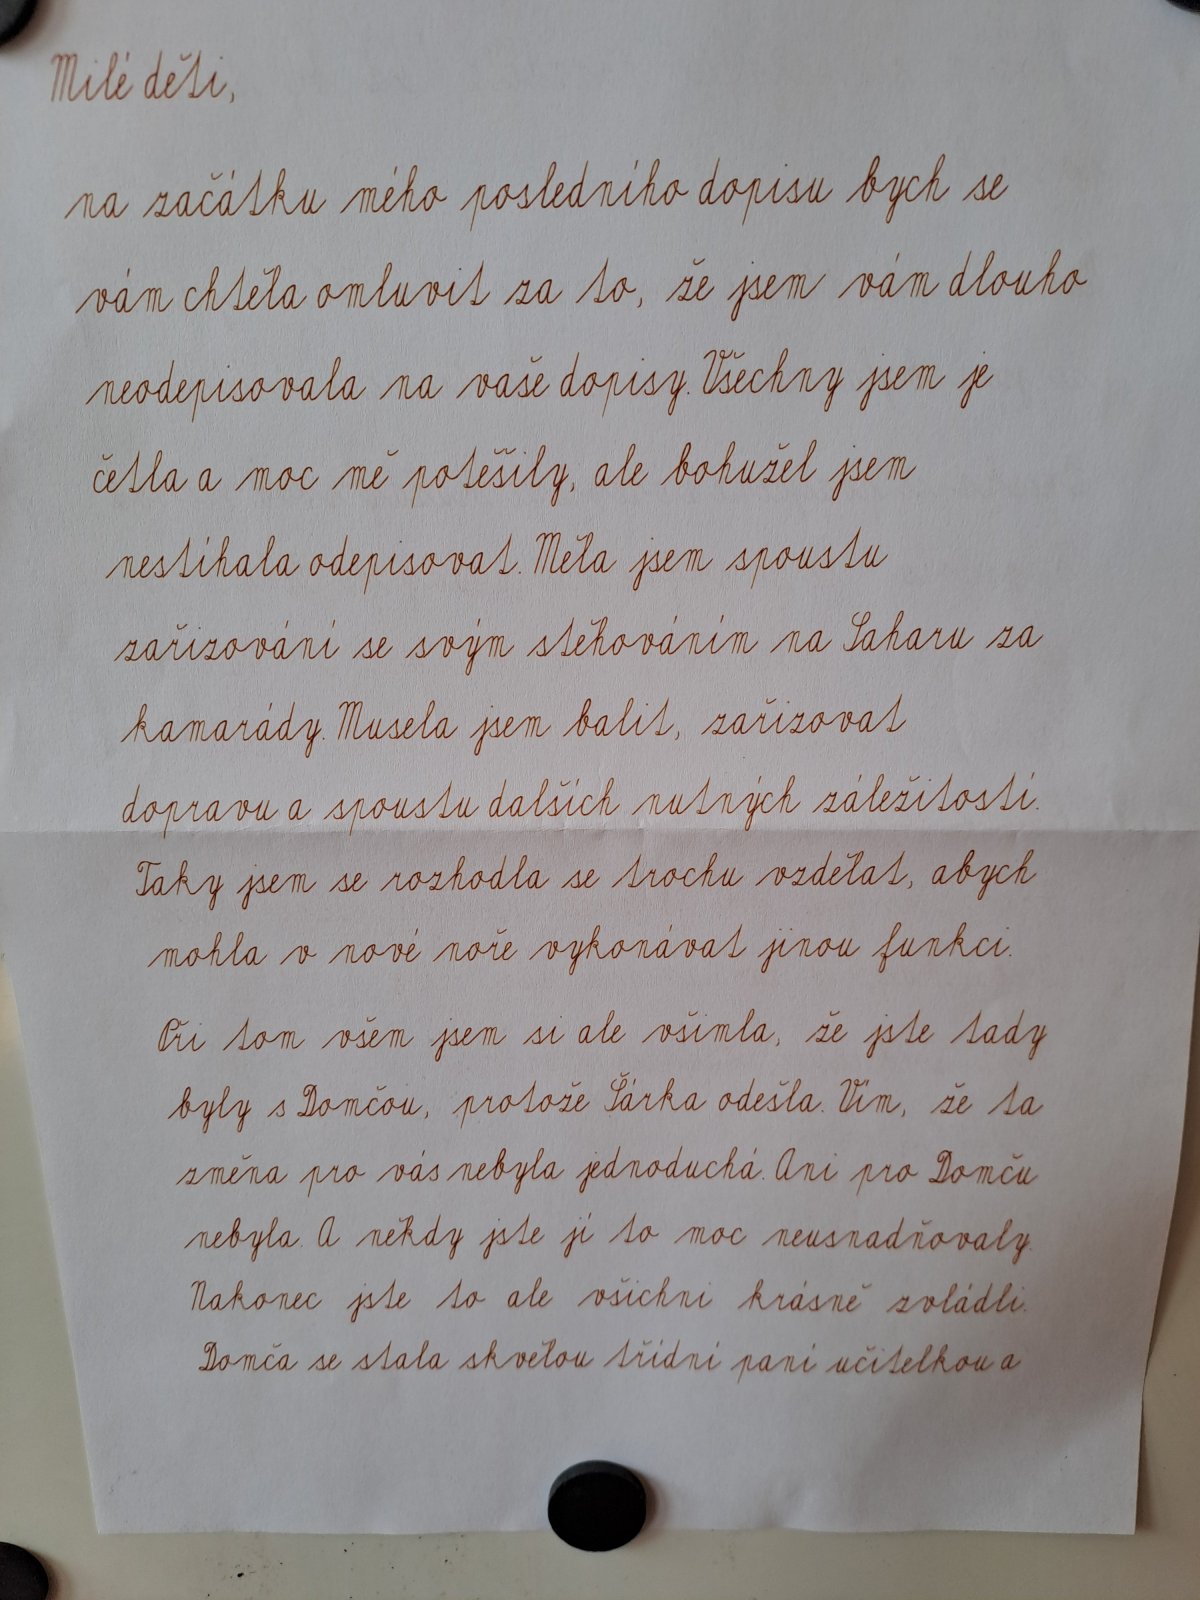 Milé děti,
na začátku mého posledního dopisu bych se
vám chtěla omluvit za to, že jsem vám dlouho
neodepisovala na vaše dopisy. Všechny jsem je
četla a moc mě potěšily, ale bohužel jsem
nestíhala odepisovat. Měla jsem spoustu
zařizování se svým stěhováním na Saharu za
kamarády. Musela jsem balit, zařizovat
dopravu a spoustu dalších nutných záležitostí.
Taky jsem se rozhodla se trochu vzdělat, abych
mohla v nové noře vykonávat jinou funkci.
Při tom všem jsem si ale všimla, že jste tady
byly s Domčou, protože Šárka odešla. Vím, že ta
změna pro vás nebyla jednoduchá. Ani pro Domču
nebyla. A někdy jste jí to moc neusnadňovaly.
Nakonec jste to ale všichni krásně zvládli.
Domča se stala skvělou třídní paní učitelkou a